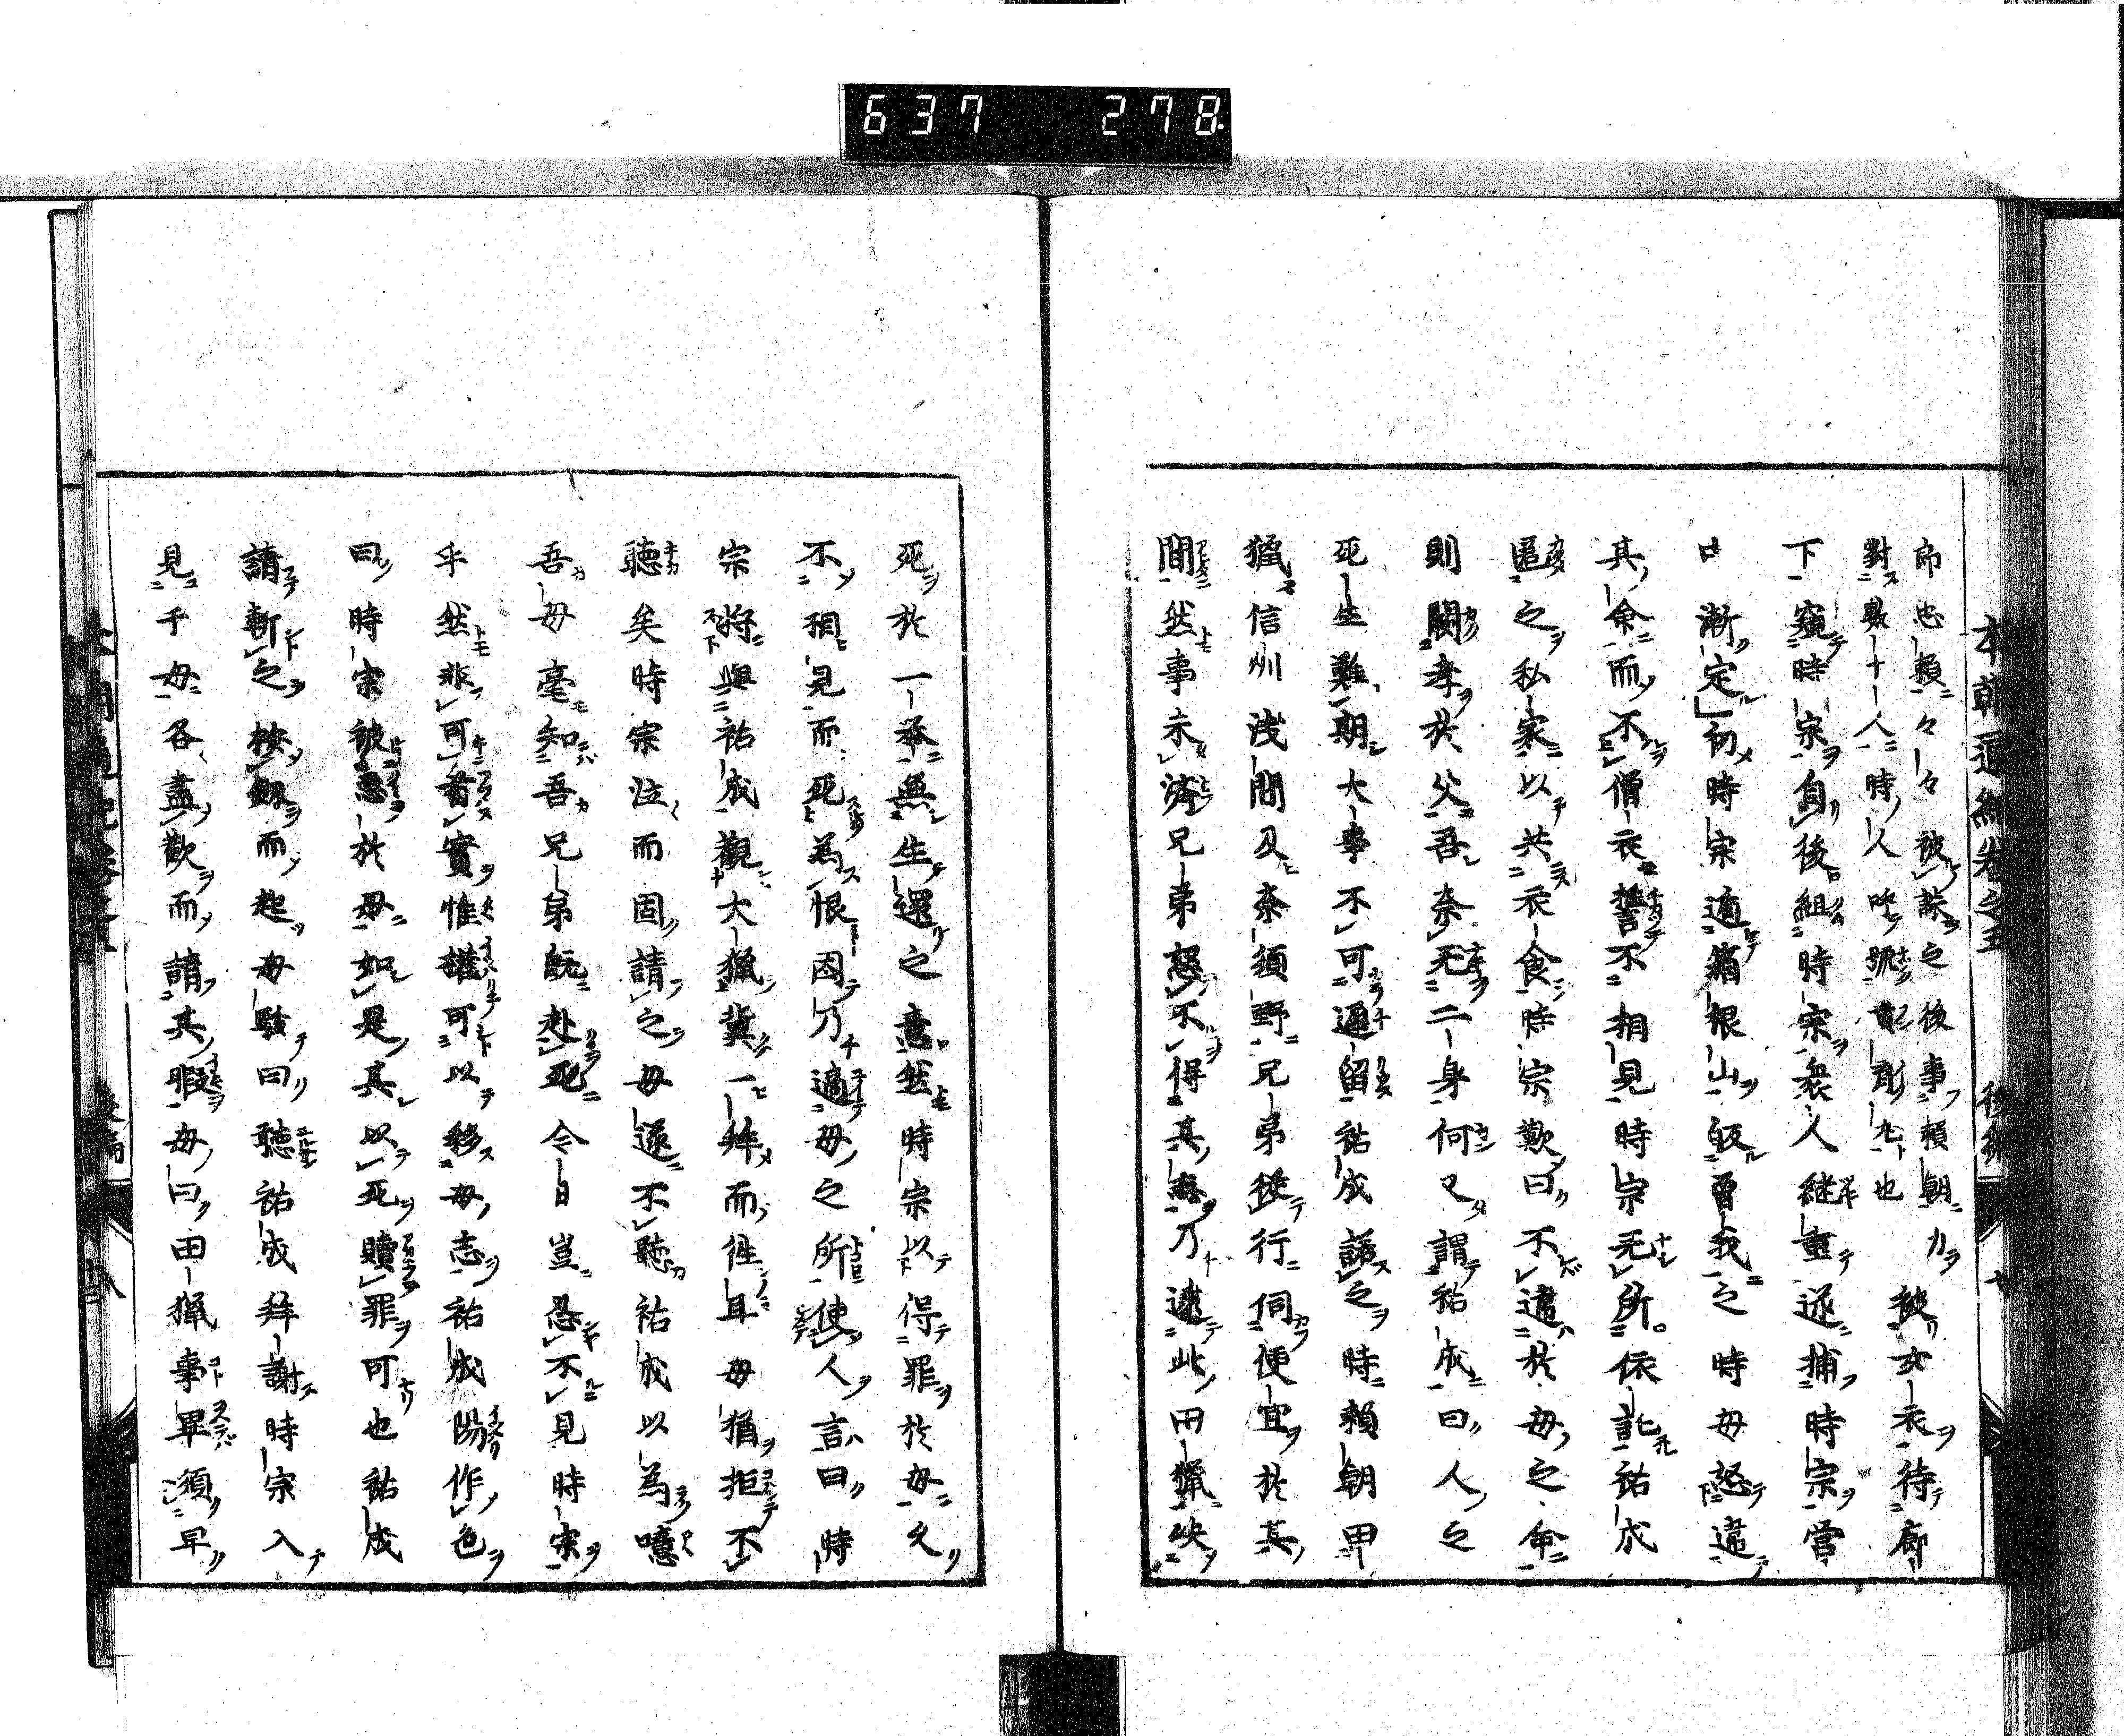 637 278
本朝通紀巻之五 後編
帚忠頼々々被誅之後事頼朝
對數十人時人呼號
力被女衣待廊
下窺時宗自後組時宗衆人継重遂捕時宗営
中漸定初時宗遁箱根山皈曽我之時母怒違
其命而不僧衣誓不相見時宗无所依託祐成
匿之私家以共衣食時宗歎曰不違於母之命
則闕孝於父吾奈无二身何又謂祐成曰人之
死生難期大事不可遲留祐成諾之時頼朝田
猟信州浅間及奈須野兄弟従行伺便宜於其
間然事未済兄弟怒不得其志乃逮此田猟決
死於一挙無生還之意然時宗以得罪於母久
不相見而死為恨因乃適母之所使人言曰時
宗将與祐成觀大猟冀一拜而徃耳母猶拒不
聴矣時宗泣而固請之母遂不聴祐成以為噫
吾母毫知吾兄弟既赴死今日豈忍不見時宗
乎然非可首實惟權可以移母志祐成陽作色
曰時宗彼愚於母如是其以死贖罪可也祐成
請斬之按劔而起母駭曰聴祐成拜謝時宗入
見于母各盡歡而請其暇母曰田猟事畢須早